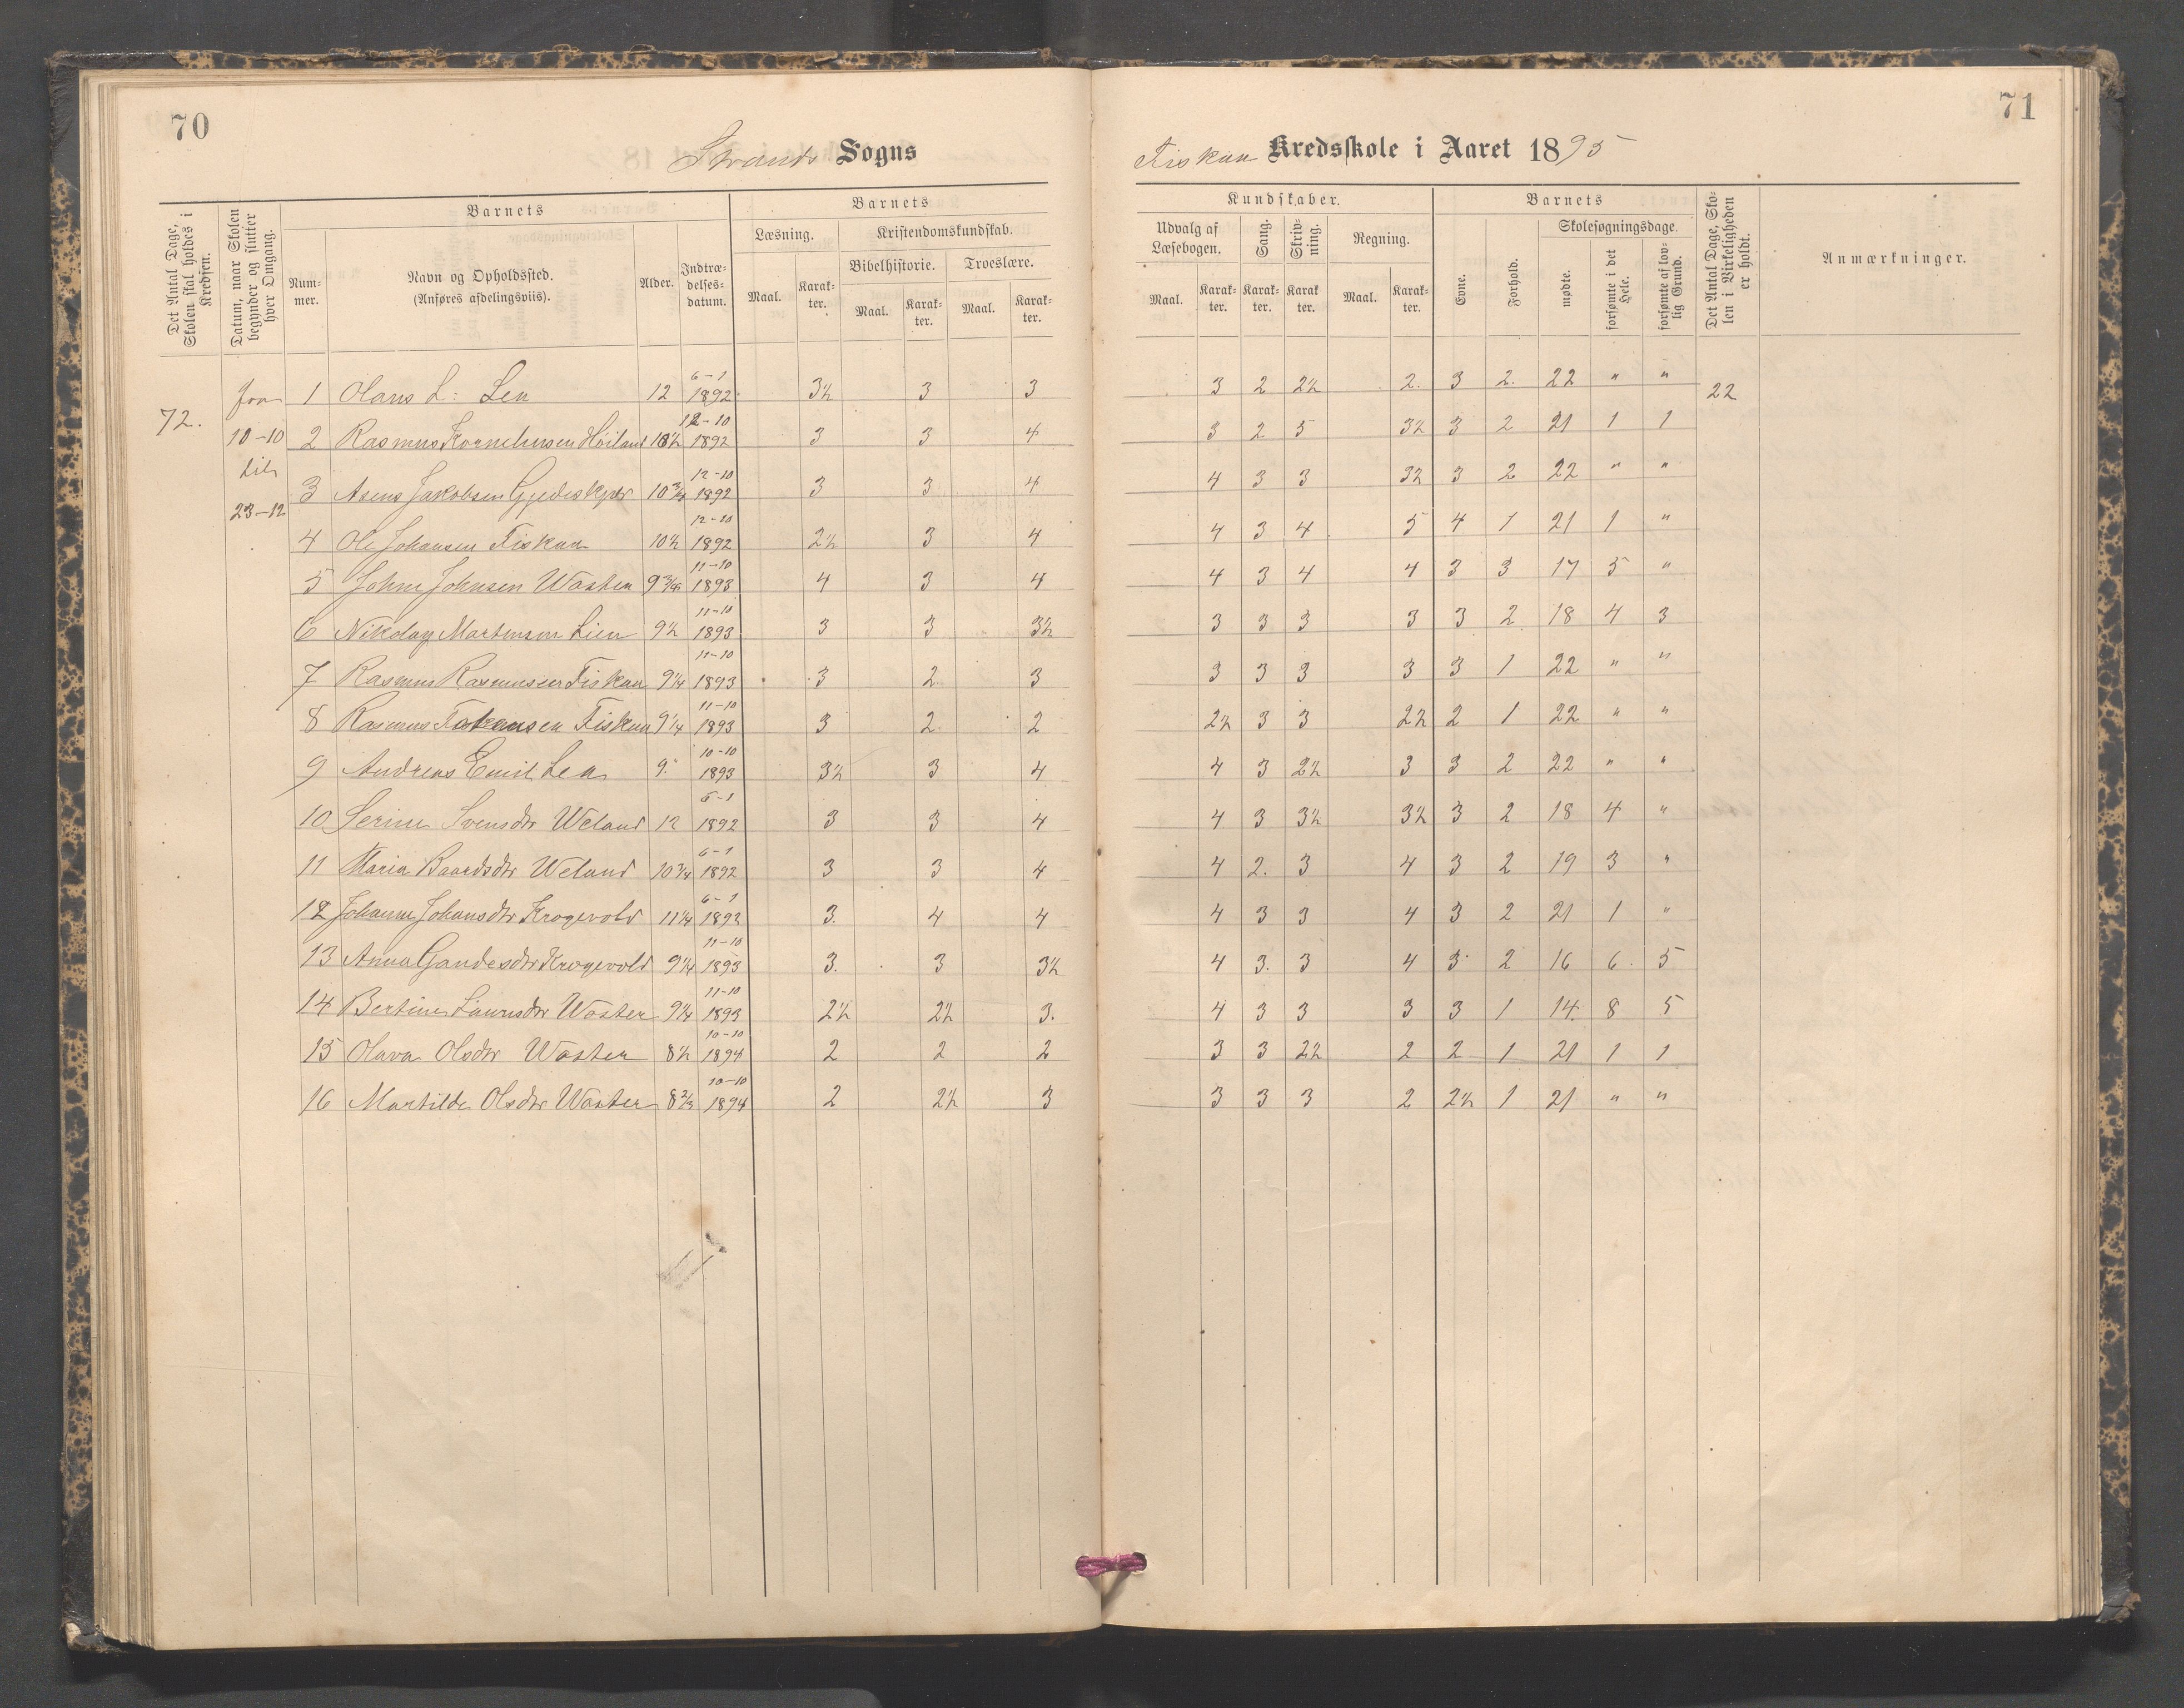 70
71
Strands Sogns
Fiskaa Kredsskole i Aaret 1895
Det Antal Dage, Skolen skal holdes i Kredsen.
Datum, naar Skolen begynder og slutter hver Omgang.
Barnets
Nummer.
Navn og Opholdssted.
(Anføres afdelingsviis).
Alder.
Indtrædelsesdatum.
Barnets
Læsning.
Kristendomskundskab.
Bibelhistorie.
Troeslære.
Maal. Karakter. Maal. Karakter. Maal. Karakter.
Kundskaber.
Udvalg af Læsebogen.
Sang.
Skrivning.
Regning.
Maal. Karakter. Karakter. Karakter. Maal. Karakter.
Barnets
Evne.
Forhold.
Skolesøgningsdage.
mødte.
forsømte i det Hele.
forsømte af lovlig Grund.
Det Antal Dage, Skolen i Virkeligheden er holdt.
Anmærkninger.
72.
fra
10-10
til
23-12
1 Olaus L: Lea 12 6-1 1892 3½ 3 3 3 2 2½ 2. 3 2. 22 " " 22
2 Rasmus Korneliusen Høiland 10½ 12-10 1892 3 3 4 3 2 5 3½ 3 2 21 1 1
3 Asens Jakobsen 10¾ 12-10 1892 3 3 4 4 3 3 3½ 3 2 22 " "
4 Ole Johansen Fiskaa 10½ 12-10 1892 2½ 3 4 4 3 4 5 4 1 21 1 "
5 Johne Johnsen Wostea 9¾ 11-10 1893 4 3 4 4 3 4 4 3 3 17 5 "
6 Nikolay Martinson Lien 9½ 11-10 1893 3 3 3½ 3 3 3 3 3 2 18 4 3
7 Rasmus Rasmussen Fiskaa 9¼ 11-10 1893 3 2 3 3 3 3 3 3 1 22 " "
8 Rasmus Fiskaa 9¼ 11-10 1893 3 2 2 2½ 3 3 2½ 2 1 22 " "
9 Andreas Emil Lea 9. 10-10 1893 3½ 3 4 4 3 2½ 3 3 2 22 " "
10 Serine Svensdtr Weland 12 6-1 1892 3 3 4 4 3 3½ 3½ 3 2 18 4 "
11 Maria Baardsdtr Weland 10¾ 6-1 1892 3 3 4 4 2. 3 4 3 2 19 3 "
12 Johanne Johansdtr Krogevold 11¼ 6-1 1892 3. 4 4 4 3 3 4 3 2 21 1 "
13 Anna Gaudesdtr Krogevold 9¼ 11-10 1893 3. 3 3½ 4 3. 3 4 3 2 16 6 5
14 Bertine Wostea 9¼ 11-10 1893 2½ 2½ 3. 4 3 3 3 3 1 14 8 5
15 Olava Olsdtr Wostea 8½ 10-10 1894 2 2 2 3 3 2½ 2 2 1 21 1 1
16 Martilde Olsdtr Wostea 8⅔ 10-10 1894 2 2½ 3 3 3 3 2 2½ 1 21 " "